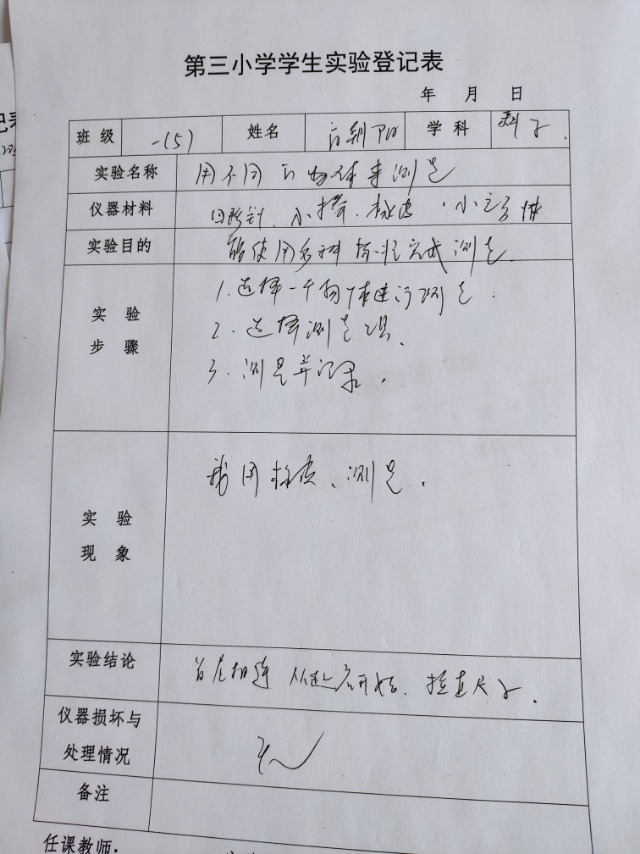 第三小学学生实验登记表
年 月 日
班级 一(5) 姓名 学科 科学.
实验名称 用不同的物体来测量
仪器材料 回形针、小棒、橡皮、小立方体
实验目的 能使用多种标准完成测量.
实验步骤 1. 选择一个物体进行测量.
2. 选择测量工具.
3. 测量并记录.
实验现象 我用橡皮、测量.
实验结论 首尾相连
仪器损坏与处理情况 无
备注
任课教师: